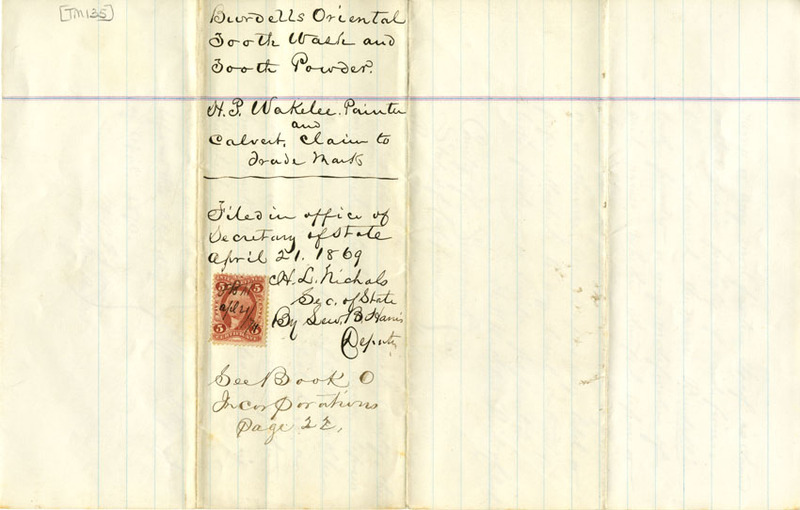 [TM135]
Burdells Oriental
Tooth Wash and
Tooth Powder.
H. P. Wakelee. Painter
and
Calvert, Claim to
Trade Mark
Filed in office of
Secretary of State
April 21. 1869
H. L. Nichols
Sec. of State
By Lew. B. Harris
Deputy
5 5
5 5
See Book O
Incorporations
Page 22.